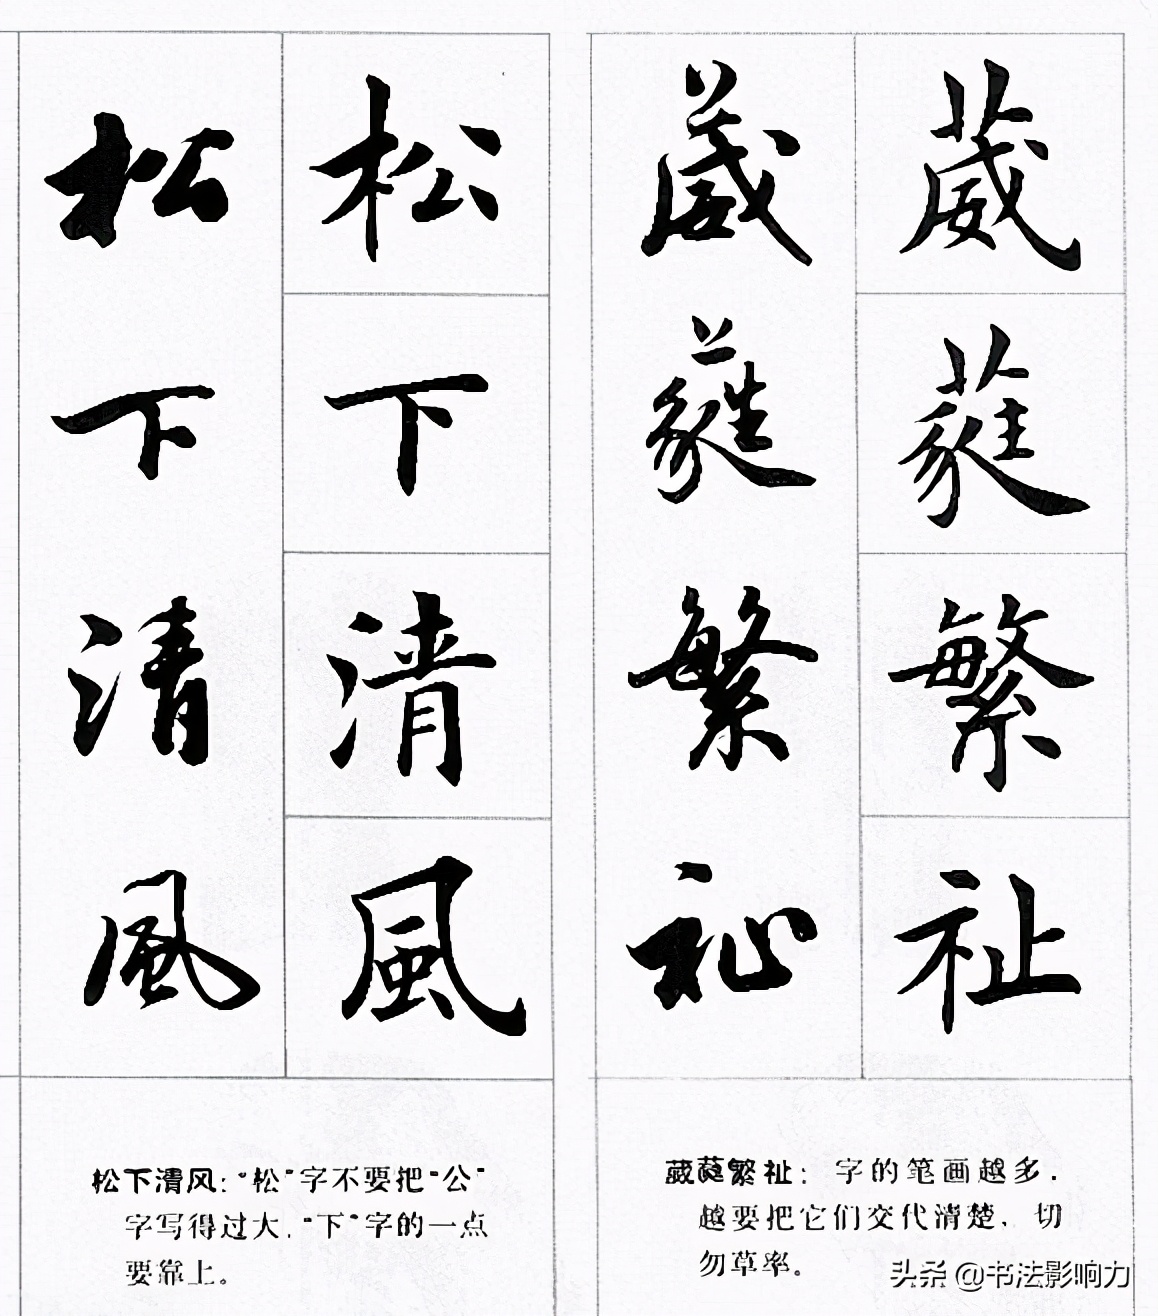 松下清風
松下清風
松下清风：“松”字不要把“公”
字写得过大，“下”字的一点
要靠上。
葳蕤繁祉
葳蕤繁祉
葳蕤繁祉：字的笔画越多，
越要把它们交代清楚，切
勿草率。
头条 @书法影响力